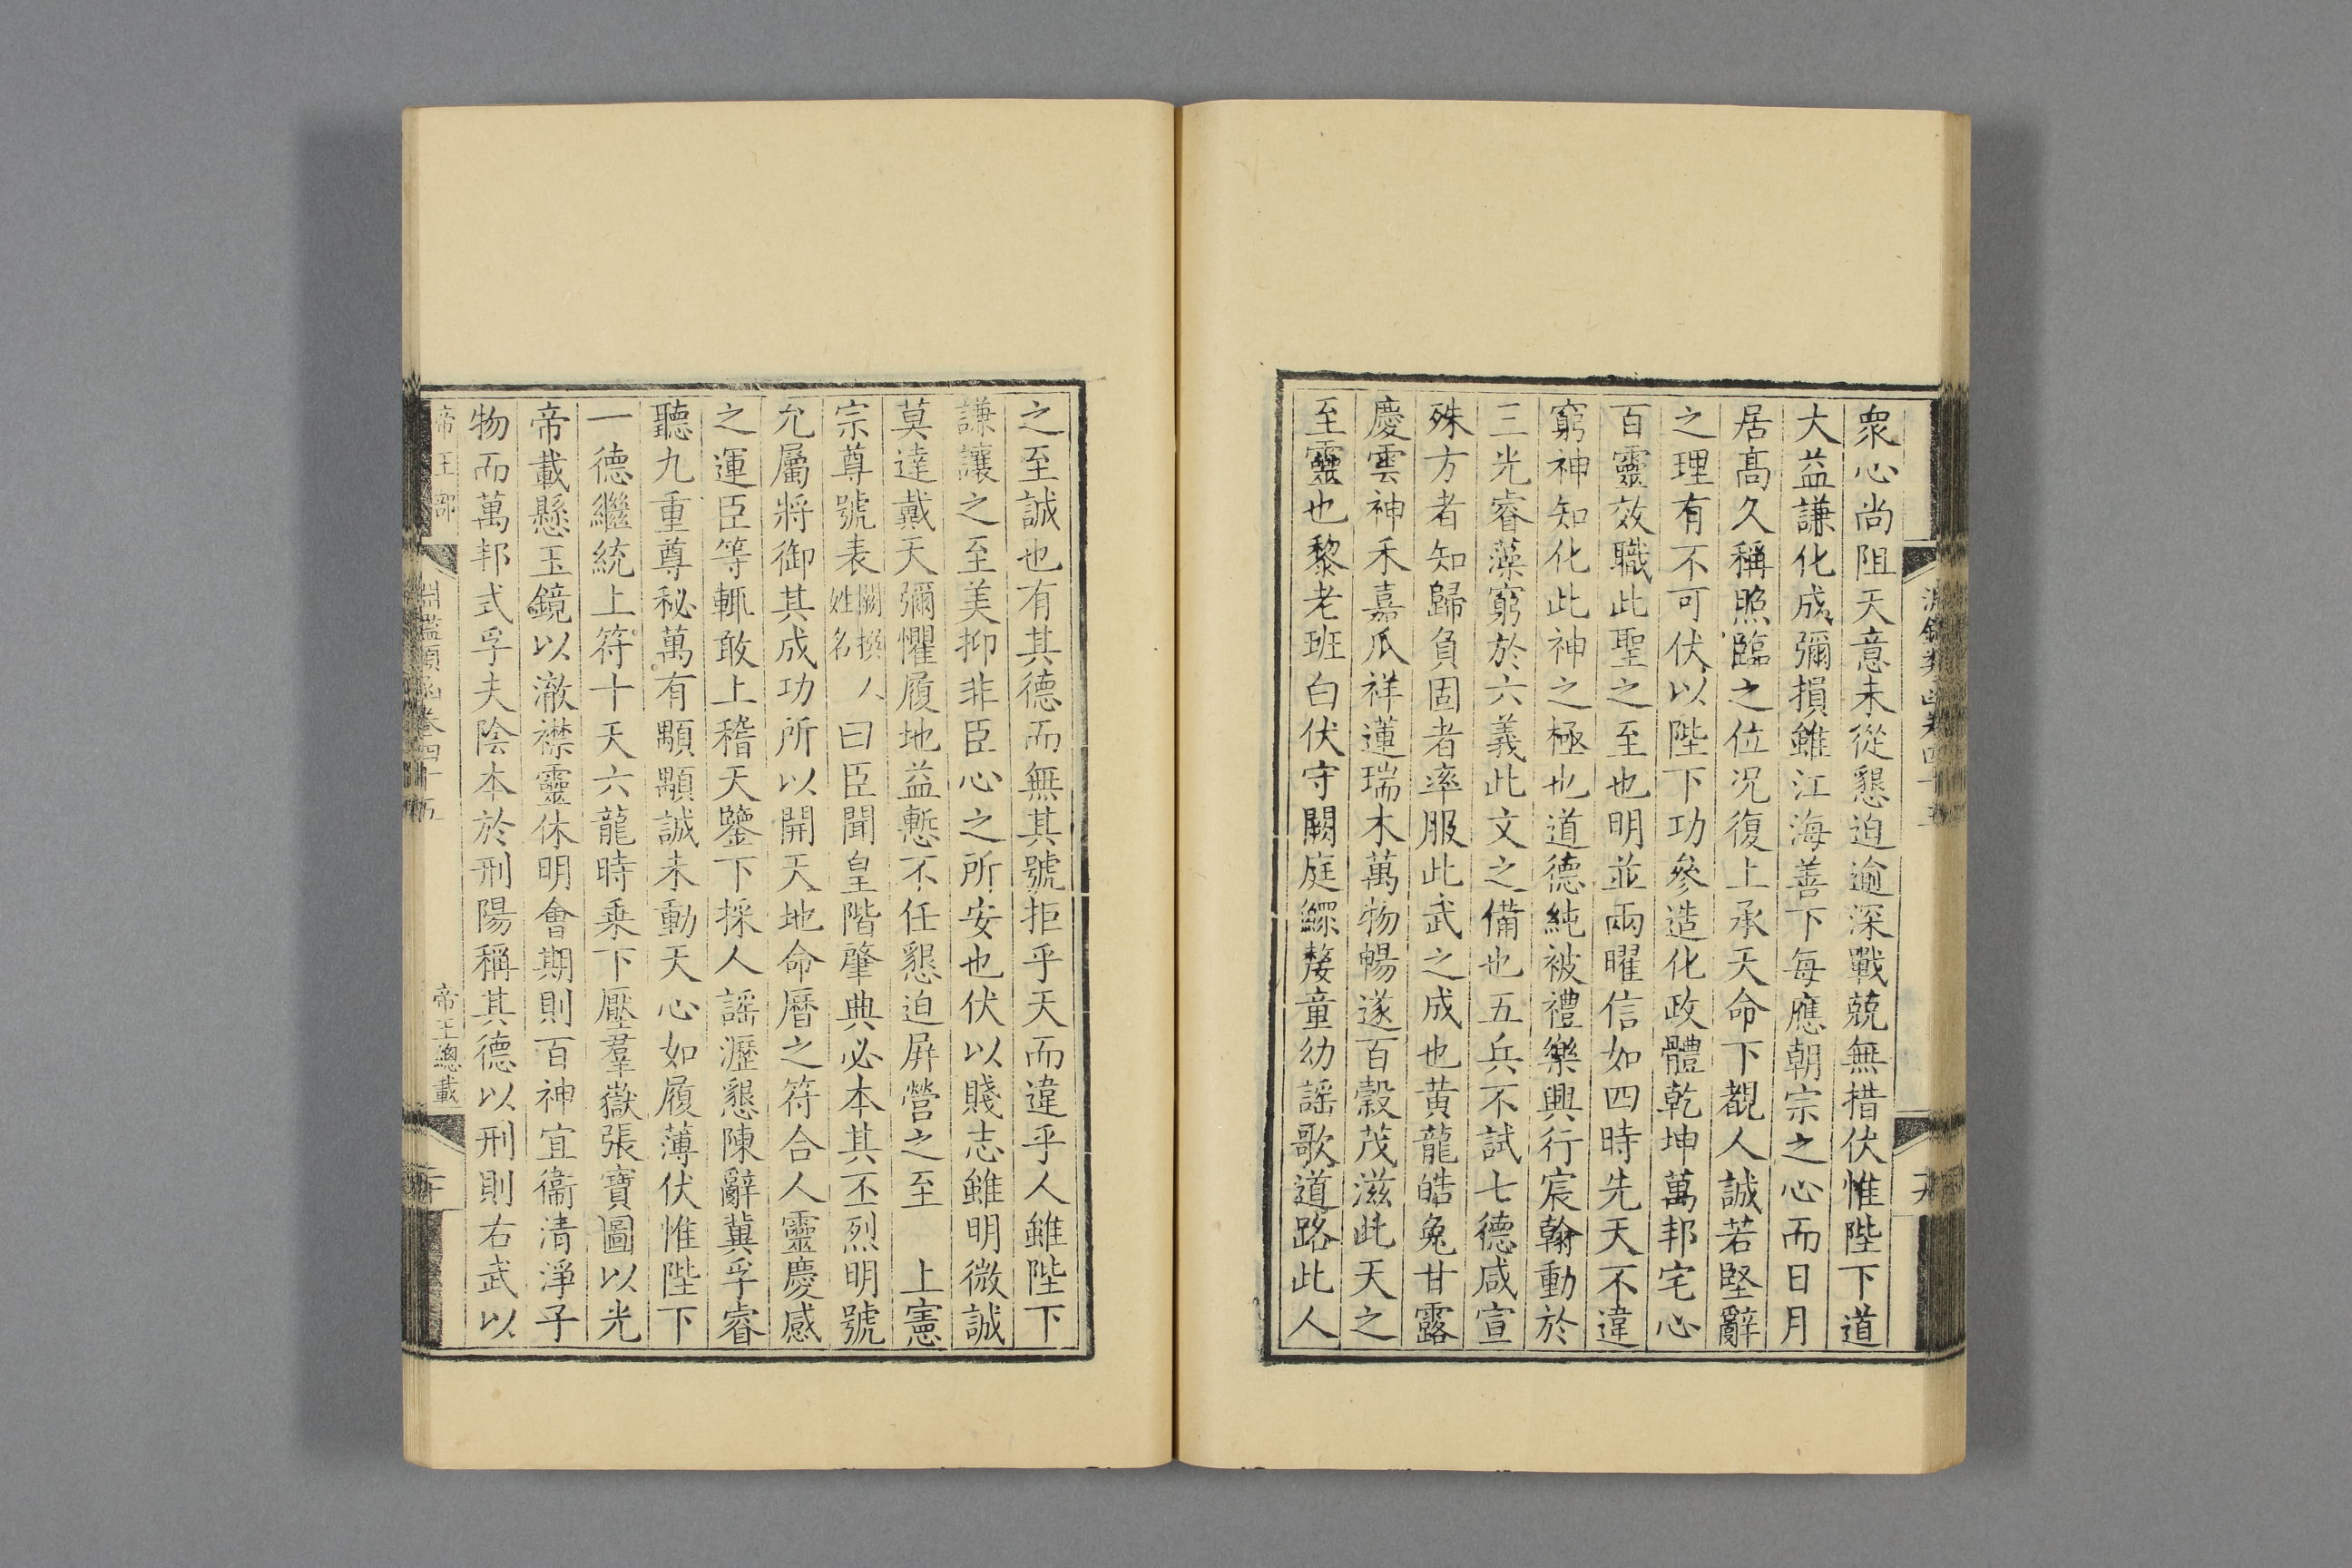 衆心尚阻天意未從懇迫逾深戰兢無措伏惟陛下道
大益謙化成彌損雖江海善下每應朝宗之心而日月
居高久稱照臨之位況復上承天命下覩人誠若堅辭
之理有不可伏以陛下功參造化政體乾坤萬邦宅心
百靈效職此聖之至也明並兩曜信如四時先天不違
窮神知化此神之極也道德純被禮樂興行宸翰動於
三光睿藻窮於六義此文之備也五兵不試七德咸宣
殊方者知歸負固者率服此武之成也黄龍皓兔甘露
慶雲神禾嘉瓜祥蓮瑞木萬物暢遂百穀茂滋此天之
至靈也黎老班白伏守闕庭鰥嫠童幼謡歌道路此人
之至誠也有其德而無其號拒乎天而違乎人雖陛下
謙讓之至美抑非臣心之所安也伏以賤志雖明微誠
莫達戴天彌懼履地益慙不任懇迫屏營之至 上憲
宗尊號表闕撰人姓名曰臣聞皇階肇典必本其丕烈明號
允屬將御其成功所以開天地命曆之符合人靈慶感
之運臣等輒敢上稽天鑒下採人謡瀝懇陳辭冀孚睿
聽九重尊秘萬有顒顒誠未動天心如履薄伏惟陛下
一德繼統上符十天六龍時乗下壓羣嶽張寶圖以光
帝載懸玉鏡以澈襟靈休明會期則百神宜衞清淨子
物而萬邦式孚夫陰本於刑陽稱其德以刑則右武以
帝王部
淵鑑類函卷四十五
帝王總載